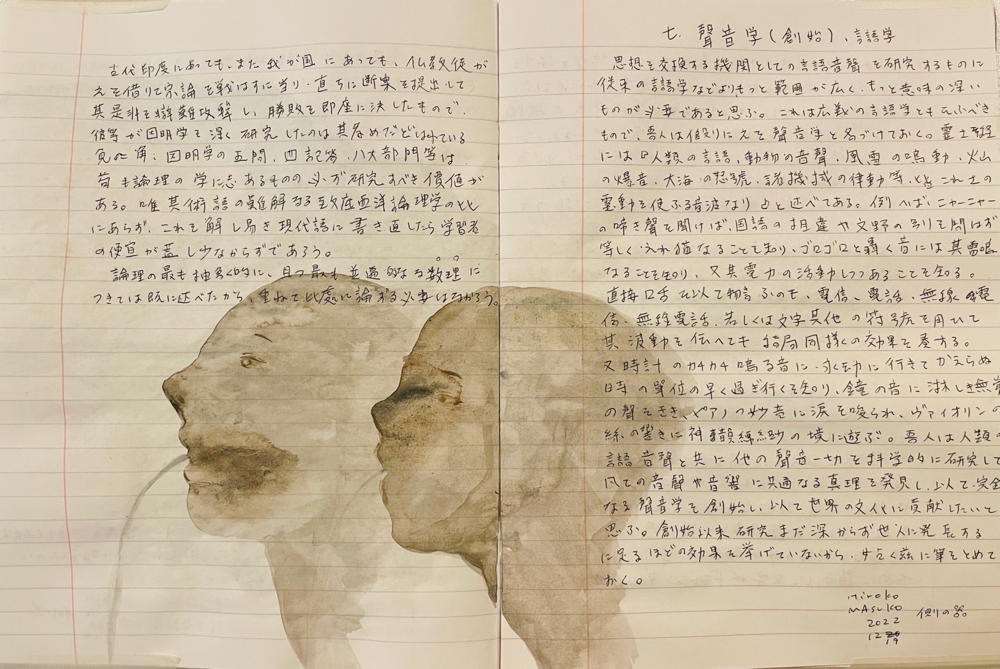 古代印度にあっても、また我が国にあっても、仏教徒が
之を借りて宗論を戦はすに当り、直ちに断案を提出して
其是非を難攻解し、勝敗を即座に決したもので、
彼等が因明学を深く研究したのは其為めだと
因明学の五問、四記答、八大部門等は
苟も論理の学に志あるものの必ず研究すべき価値が
ある。唯其術語の難解なる到底西洋論理学の比
にあらず、これを解し易き現代語に書き直したら学習者
の便宜が蓋し少なからずであろう。
論理の最も抽象的に、且つ最も普遍的なる数理に
つきては既に述べたから、重ねて此處に論ずる必要はなかろう。
七、聲音学(創始)、言語学
思想を交換する機関としての言語音聲を研究するものに
従来の言語学などよりもっと範囲が広く、もっと意味の深い
ものが必要であると思ふ。これは広義の言語学とも云ふべき
もので、吾人は仮りに之を聲音学と名づけておく。
には人類の言語、動物の音聲、風雪の鳴動、火山
の爆音、大海の怒號、諸機械の律動等、
霊動を使ふる音波なりと述べてある。例へば、ニャーニャー
の啼き聲を聞けば、国語の相違や文野の別を問はず
等しく之れ猫なることを知り、ゴロゴロと轟く音には其雷鳴
なることを知り、又其電力の活動しつつあることを知る。
直接口舌を以て物言ふのも、電信、電話、無線電
信、無線電話、若しくは文字其他の符号を用ひて
其波動を伝へても結局同様の効果を奏する。
又時計のカチカチ鳴る音に、永劫に行きてかえらぬ
時の單位の早く過ぎ行くを知り、鐘の音に淋しき無常
の聲をきき、ピアノの妙音に涙を唆られ、ヴァイオリンの
絲の響きに神韻縹緲の境に遊ぶ。吾人は人類の
言語音聲と共に他の聲音一切を科学的に研究して
凡ての音聲や音響に共通なる真理を発見し、以て完全
なる聲音学を創始し、以て世界の文化に貢献したいと
思ふ。創始以来研究まだ深からず世人に発表する
に足るほどの効果を挙げていないから、少らく茲に筆をとめて
おく。
Hiroko
MAsuko
2022
12 19
側の器